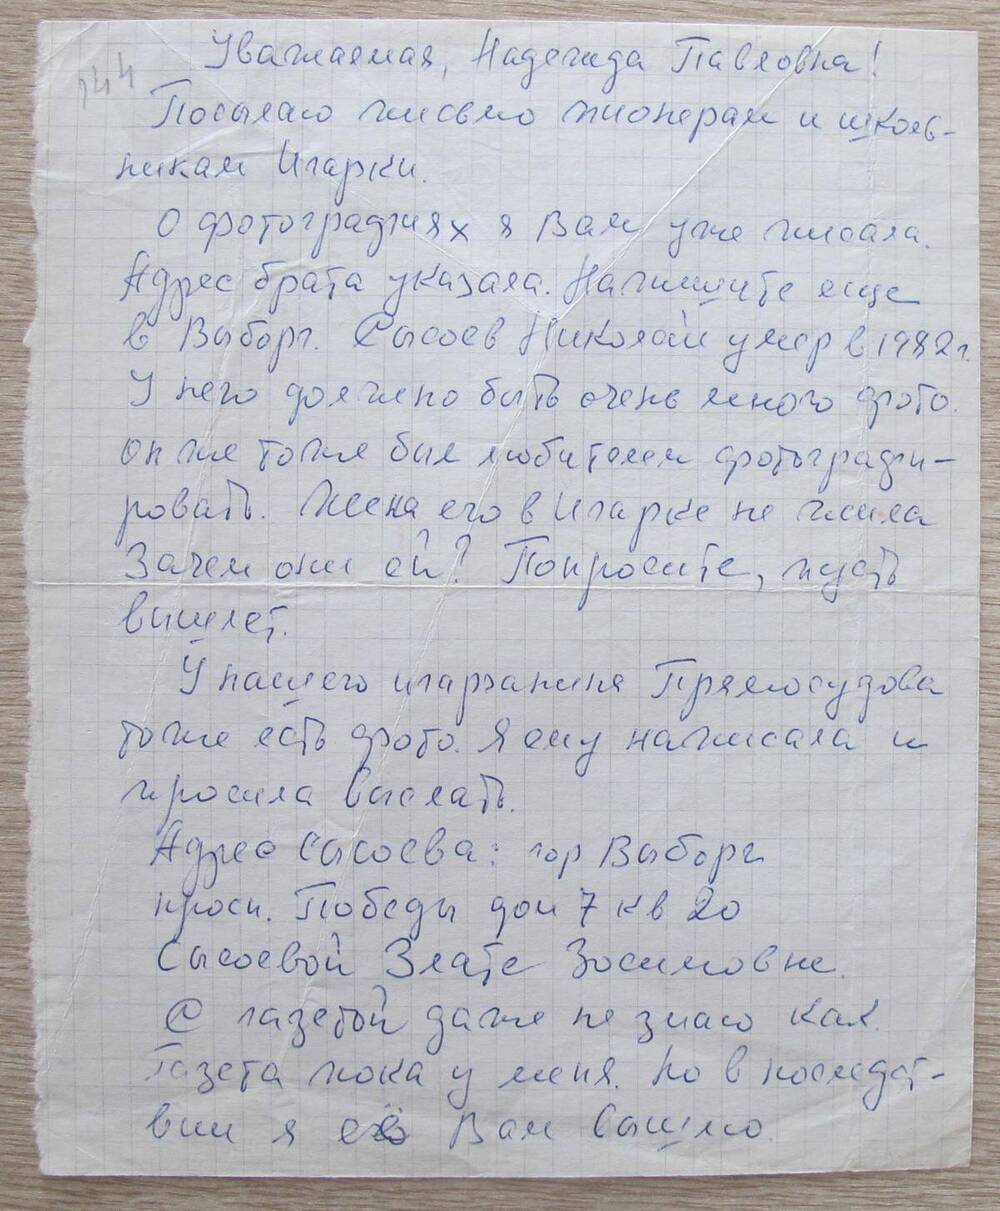 144
Уважаемая, Надежда Павловна!
Посылаю письмо пионерам и школь-
никам Игарки.
О фотографиях я Вам уже писала.
Адрес брата указала. Напишите еще
в Выборг. Сысоев Николай умер в 1982 г.
У него должно быть очень много фото.
он же тоже был любителем фотографи-
ровать. Жена его в Игарке не жила
Зачем они ей? Попросите, пусть
вышлет.
У нашего игарчанина Прямосудова
тоже есть фото. Я ему написала и
просила выслать.
Адрес Сысоева: гор Выборг
просп. Победы дом 7 кв 20
Сысоевой Злате Зосимовне.
С газетой даже не знаю как.
Газета пока у меня. Но в последст-
вии я её Вам вышлю.